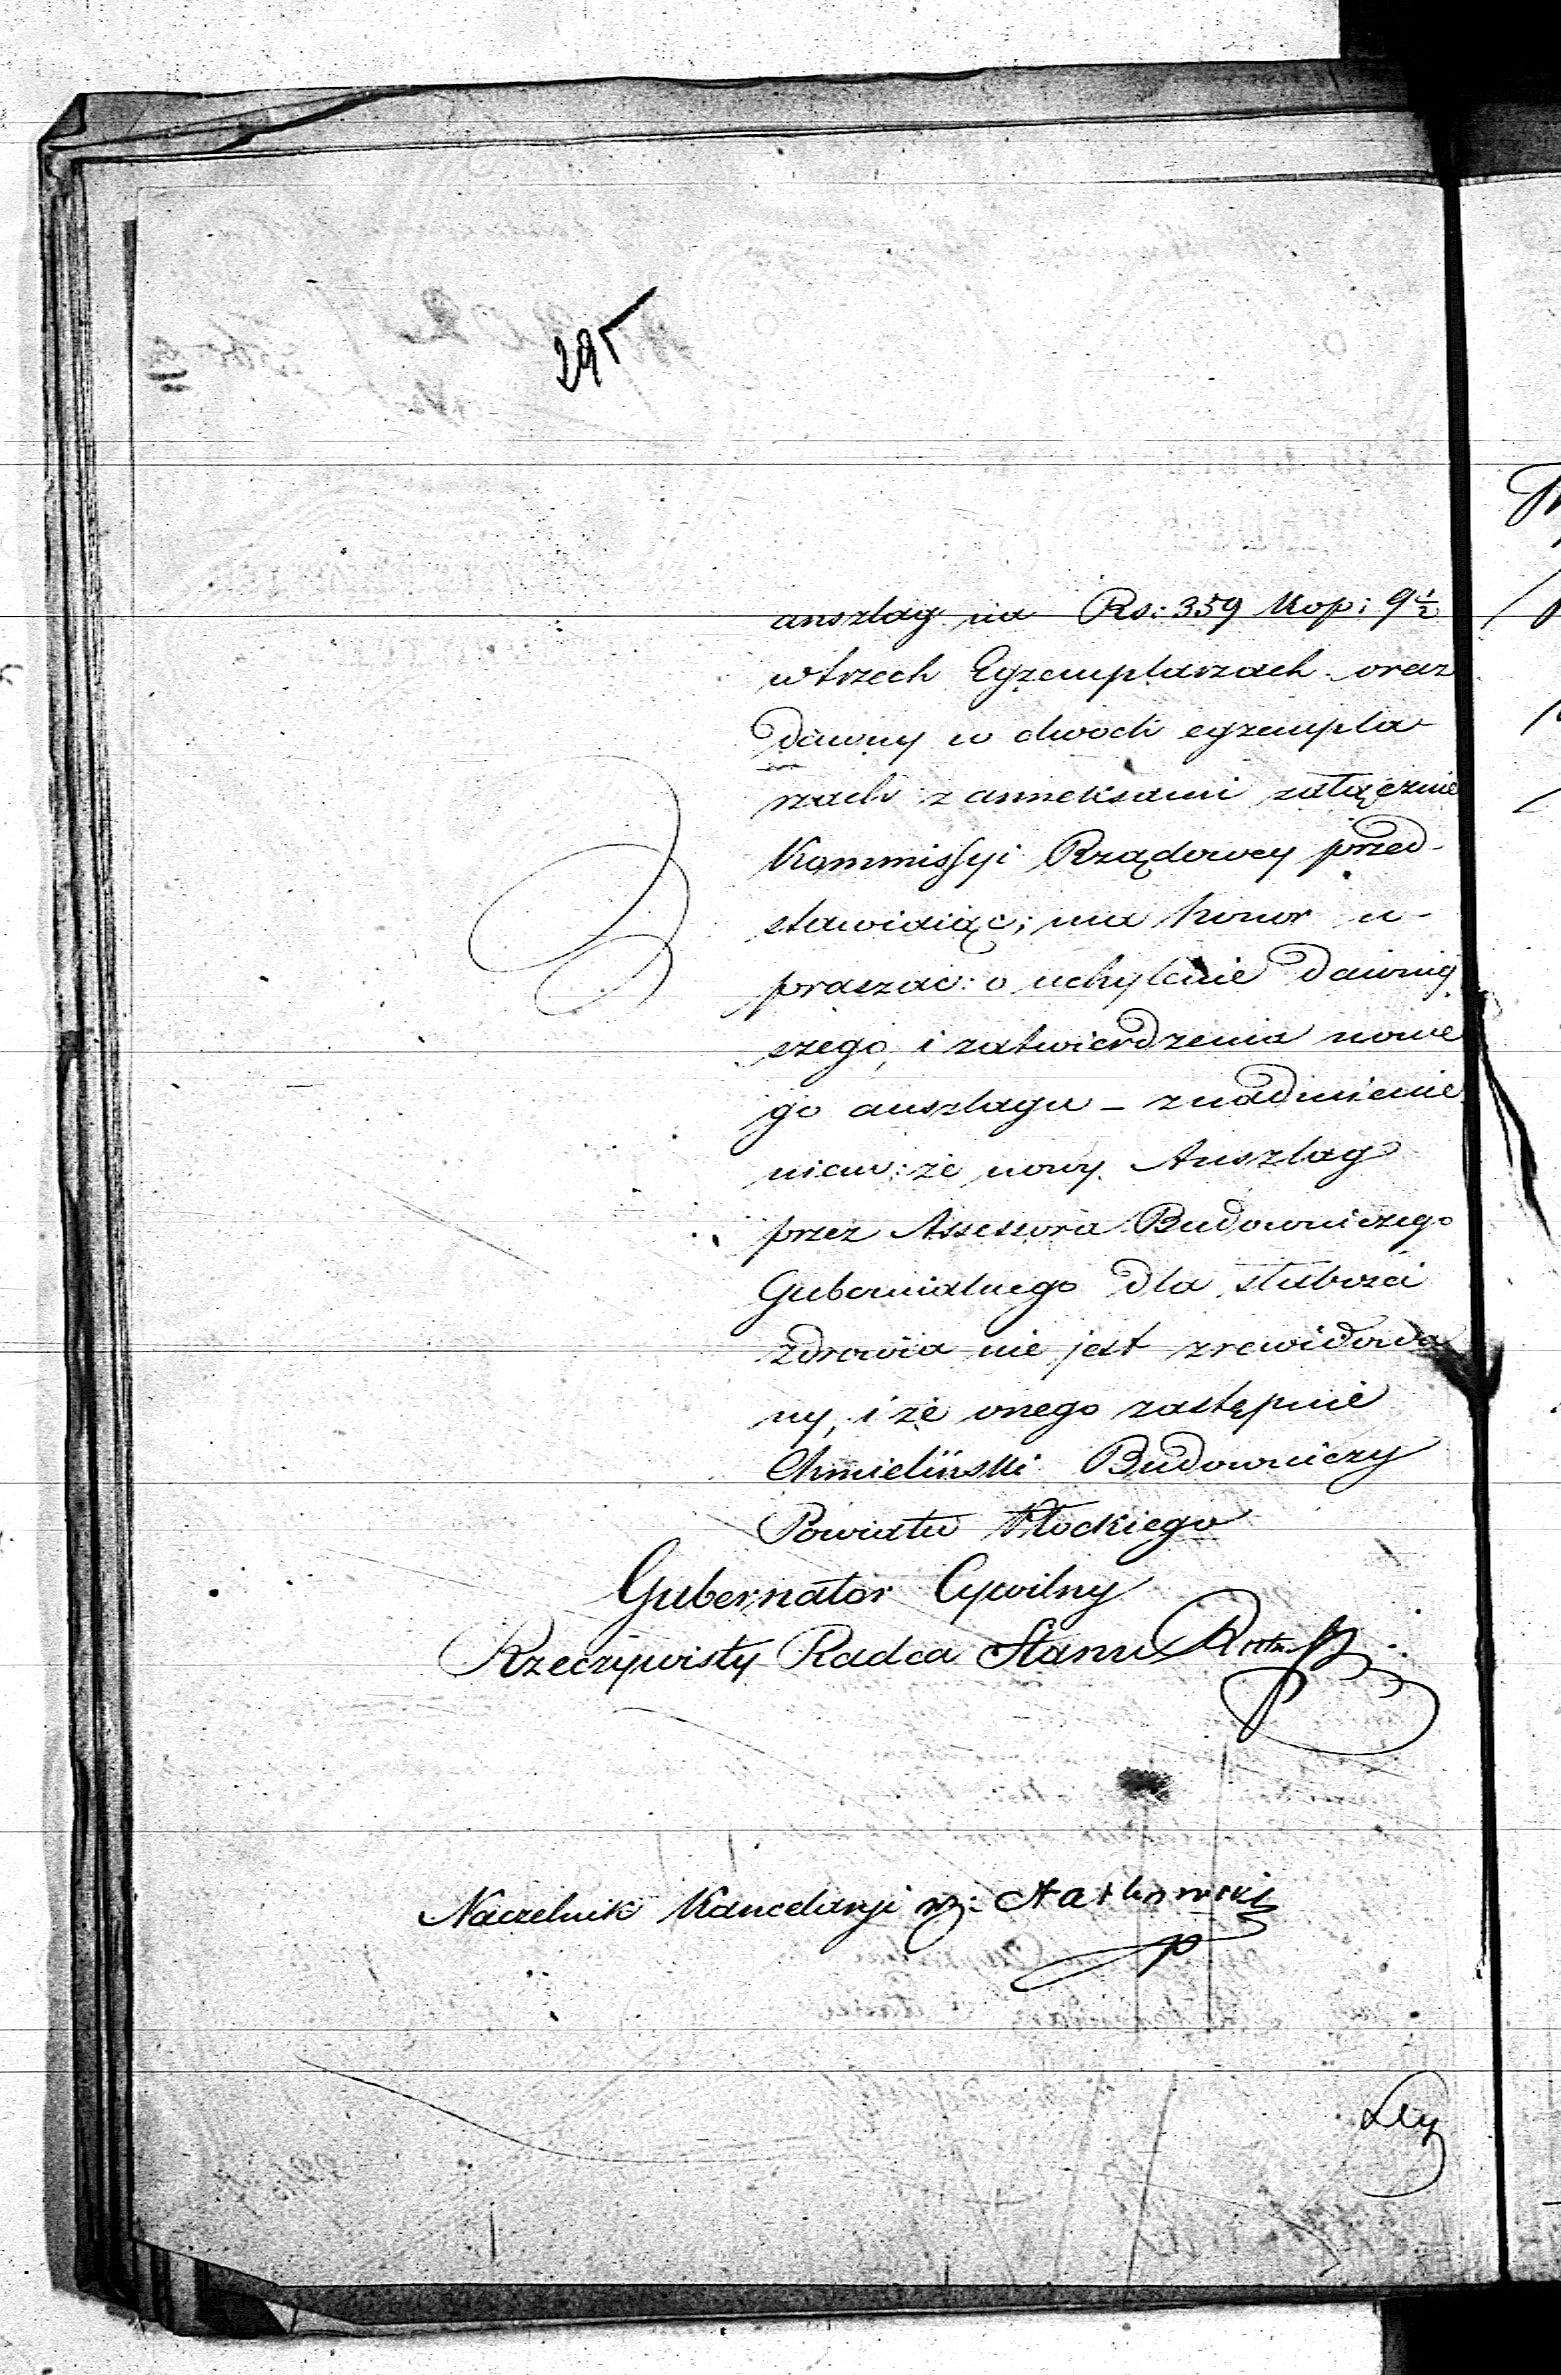 295
anszlag na Rs: 359 Kop: 9½
w trzech Egzemplarzach oraz
dawny w dwoch egzempla-
rzach z anneksami załącznie
Kommissyi Rządowey przed-
stawiaiąc; ma honor u-
praszać: o uchylenie dawniy
szego, i zatwierdzenia nowe
go anszlagu – z nadmienie
niem: że nowy Anszlag
przez Assessora Budowniczego
Gubernialnego dla słabości
zdrowia nie jest zrewidowa
ny, i że onego zastępuie
Chmieliński Budowniczy
Powiatu Płockiego
Gubernator Cywilny
Rzeczywisty Radca Stanu
Naczelnik Kancelaryi